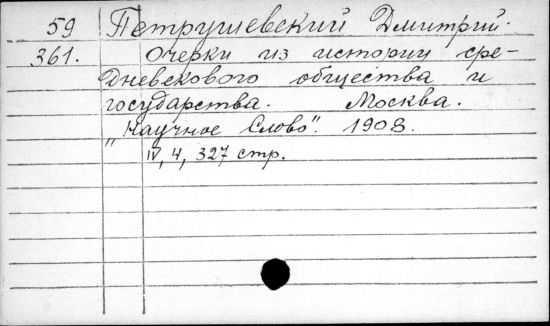 59 Петрушевский Дмитрий.
361. Очерки из истории сре-
дневекового общества и
государства. Москва.
„Научное Слово". 1908.
IV, 4, 327 стр.